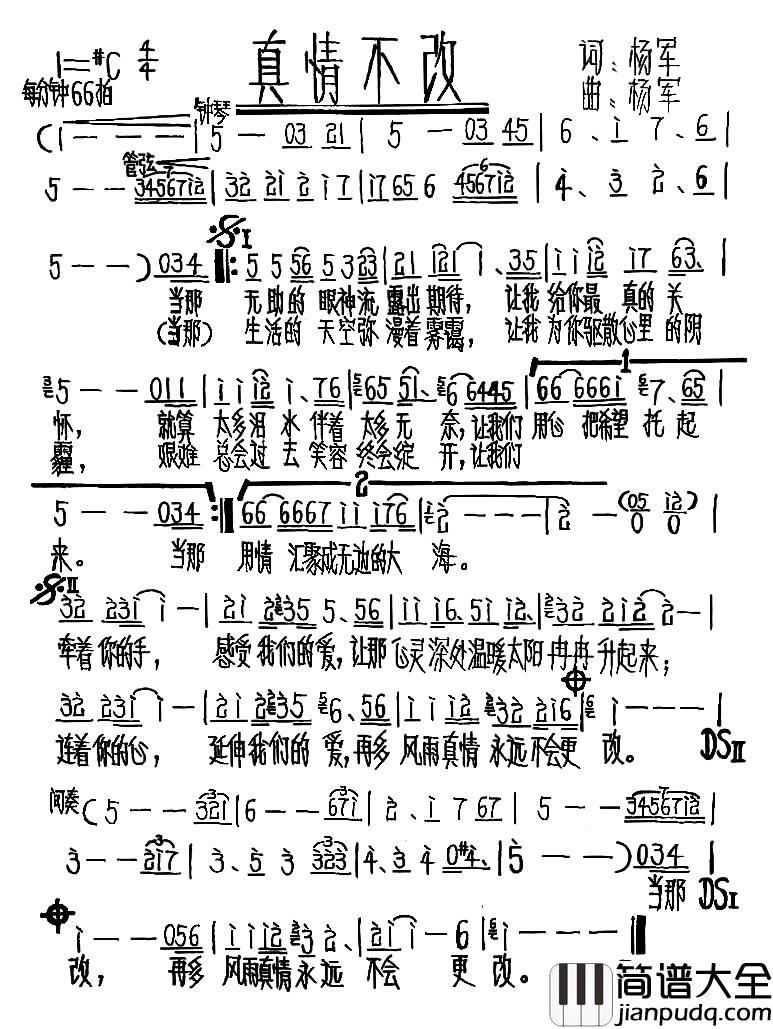 真情不改
1=#C 4/4
词：杨军
曲：杨军
每分钟66拍
钟琴
(1 - - - | 5 - 03 21 | 5 - 03 45 | 6 、 i 7 、 6 |
管弦
5 - - 34567i2 | 32 2i 2 i7 | i7 65 6 4567i2 | 4 、 3 2 、 6 |
5 - - ) 034 ‖: 5 5 56 5 3 23 | 21 121 1 、 35 | i i i2 i7 63 、 |
当那 无助的 眼神流露出期待， 让我 给你最 真的 关
(当那) 生活的 天空弥漫着雾霭， 让我 为你驱散心里 的阴
5 - - 011 | i i i2 i 、 76 | 65 5i 、 6 6445 | 66 666i 7 、 65 |
怀， 就算 太多泪水 伴着 太多无 奈，让我们 用心 把希望 托 起
霾， 艰难 总会过去 笑容 终会绽 开，让我们
1
5 - - 034 :‖ 66 6667 i i i76 | 2 - - - | 2 - (05 i2 |
0 0
2
来。 当那 用情 汇聚成无边的大 海。
II
32 23i i - | 2i 2 35 5 、 56 | i i i6 、 5i i2 、 | 32 2i2 2 - |
牵着 你的手， 感受 我们的 爱，让那 心灵深处温暖太阳 冉冉 升起来；
32 23i i - | 2i 2 35 6 、 56 | i i i i2 32 2i6 | i - - - |
连着 你的心， 延伸我们的 爱，再多 风雨真情 永远 不会更 改。 DSII
间奏 (5 - - 32i | 6 - - 67i | 2 、 i 7 67 | 5 - - 34567i2 |
3 - - 2i7 | 3 、 5 3 323 | 4 、 3 4 0#4 、 | 5 - - ) 034 |
当那 DSI
i - - 056 | i i i i2 3 2 、 | 2i i - 6 | i - - - ‖
改， 再多 风雨真情 永远 不会 更 改。
简谱大全
jianpudq.com